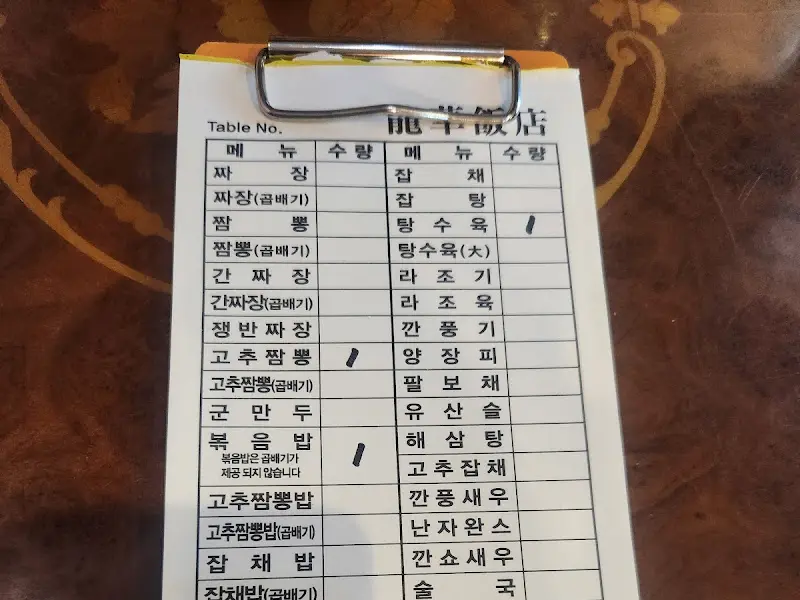 Table No. 龍華飯店
메 뉴 수 량 메 뉴 수 량
짜 장 잡 채
짜장(곱배기) 잡 탕
짬 뽕 탕 수 육
짬뽕(곱배기) 탕수육(大)
간 짜 장 라 조 기
간짜장(곱배기) 라 조 육
쟁 반 짜 장 깐 풍 기
고 추 짬 뽕 양 장 피
고추짬뽕(곱배기) 팔 보 채
군 만 두 유 산 슬
볶 음 밥 해 삼 탕
볶음밥은 곱배기가
제공 되지 않습니다 고 추 잡 채
고추짬뽕밥 깐 풍 새 우
고추짬뽕밥(곱배기) 난 자 완 스
잡 채 밥 깐 쇼 새 우
잡채밥(곱배기) 술 국